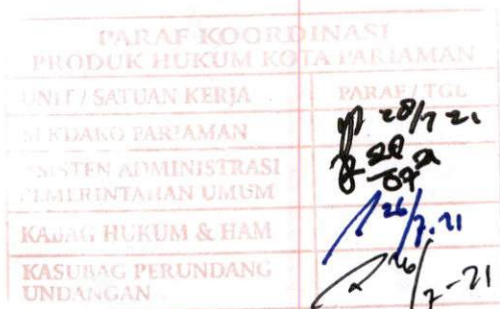 PARAF KOORDINASI
PRODUK HUKUM KOTA PARIAMAN
UNIT / SATUAN KERJA PARAF / TGL
SEKDAKO PARIAMAN 28/7 21
ASISTEN ADMINISTRASI
PEMERINTAHAN UMUM
KABAG HUKUM & HAM 26/7.21
KASUBAG PERUNDANG
UNDANGAN 26/7-21